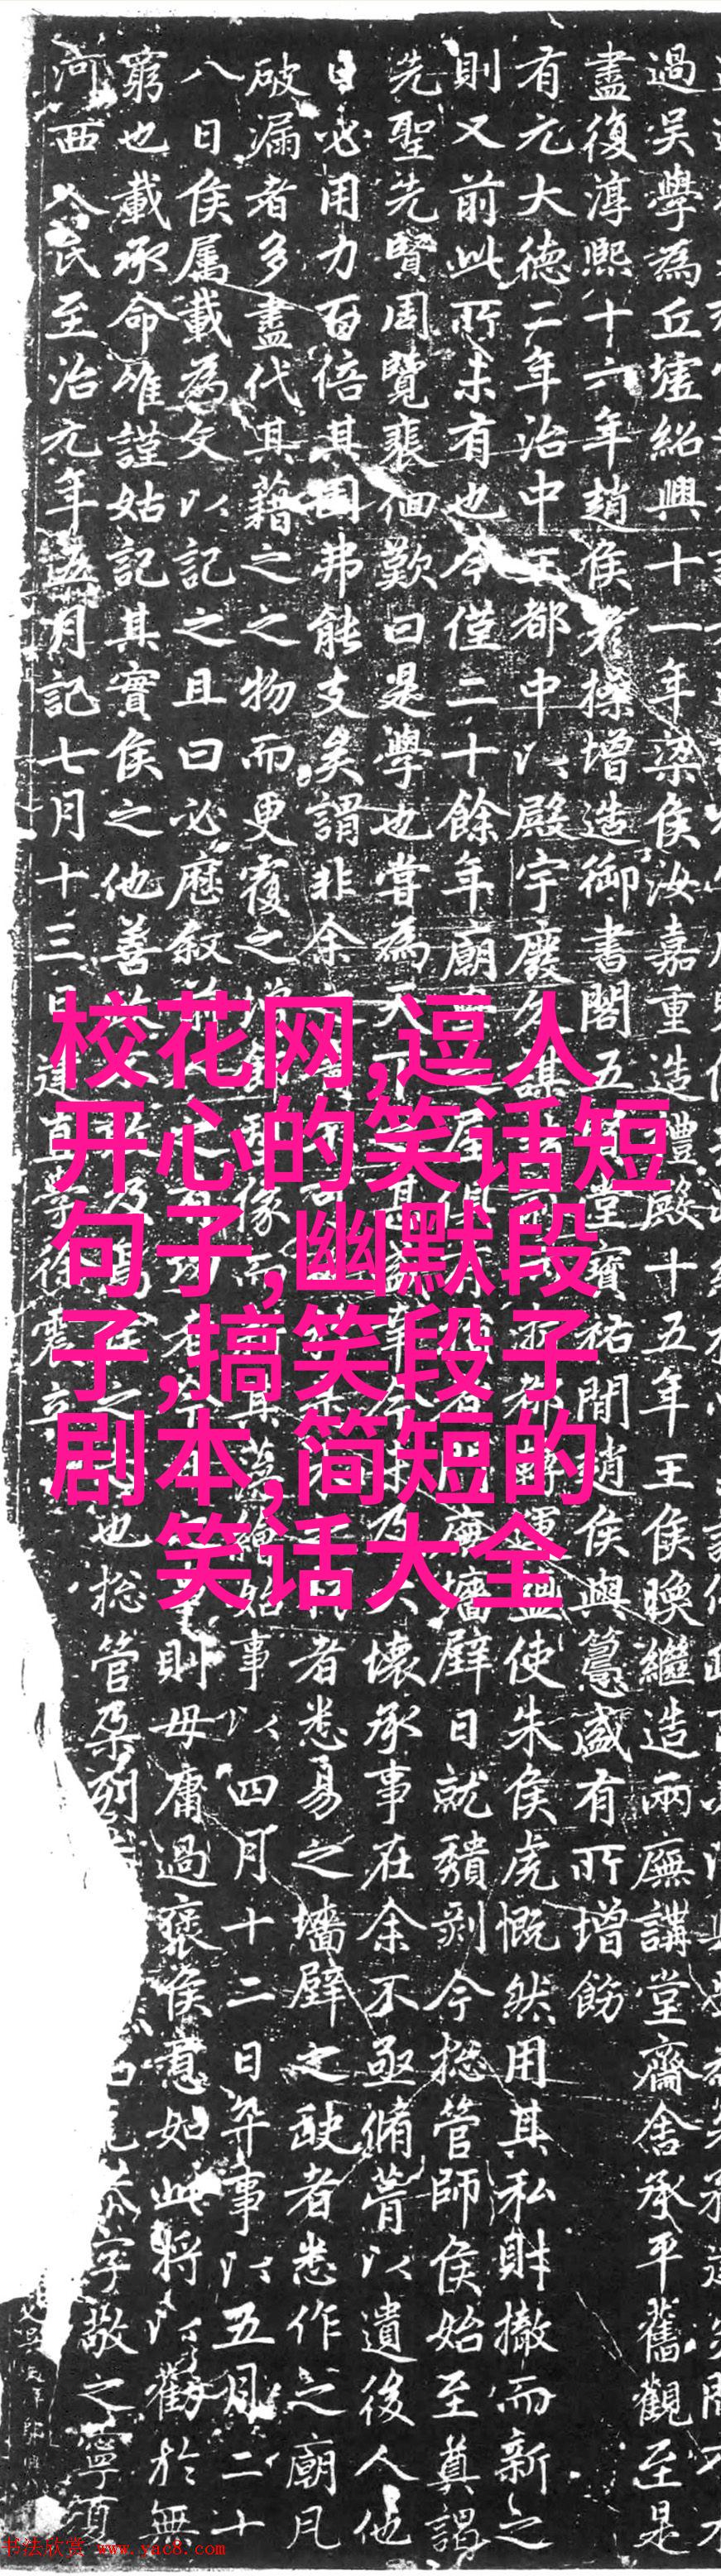 過吴學為丘墟紹興十一年梁侯汝嘉重造禮殿十五年王侯㬇繼造兩廡講堂齋舍承平舊觀至是
盡復淳熙十六年趙侯
增造御書閣五
堂寶祐間趙侯與𥲅盛有所增飭
有元大德二年治中王都中以殿宇廢久謀
使朱侯虎慨然用其私財撤而新之
則又前此所未有也今僅二十餘年廟
廡墻壁日就
剥今揔管師侯始至奠謁
先聖先賢周覽裴佪歎曰是學也嘗為天下
大壞承事在余不亟脩葺以遺後人他
日必用力百倍其
弗能支矣謂非余
者悉易之墻壁之
者悉作之廟凡
破漏者多盡代其藉之之物而更覆之
像而
其
繪始事以四月十二日
事以五月二十
八日侯属載為文以記之且曰必歷叙
則毋庸過褒侯意如此将以勸於無
窮也載承命惟謹姑記其實侯之他善
及
也揔管朶列
字敬之寧
河西人氏至治元年五月記七月十三日
校花网,逗人
开心的笑话短
句子,幽默段
子,搞笑段子
剧本,简短的
笑话大全
书法欣赏 www.yac8.com